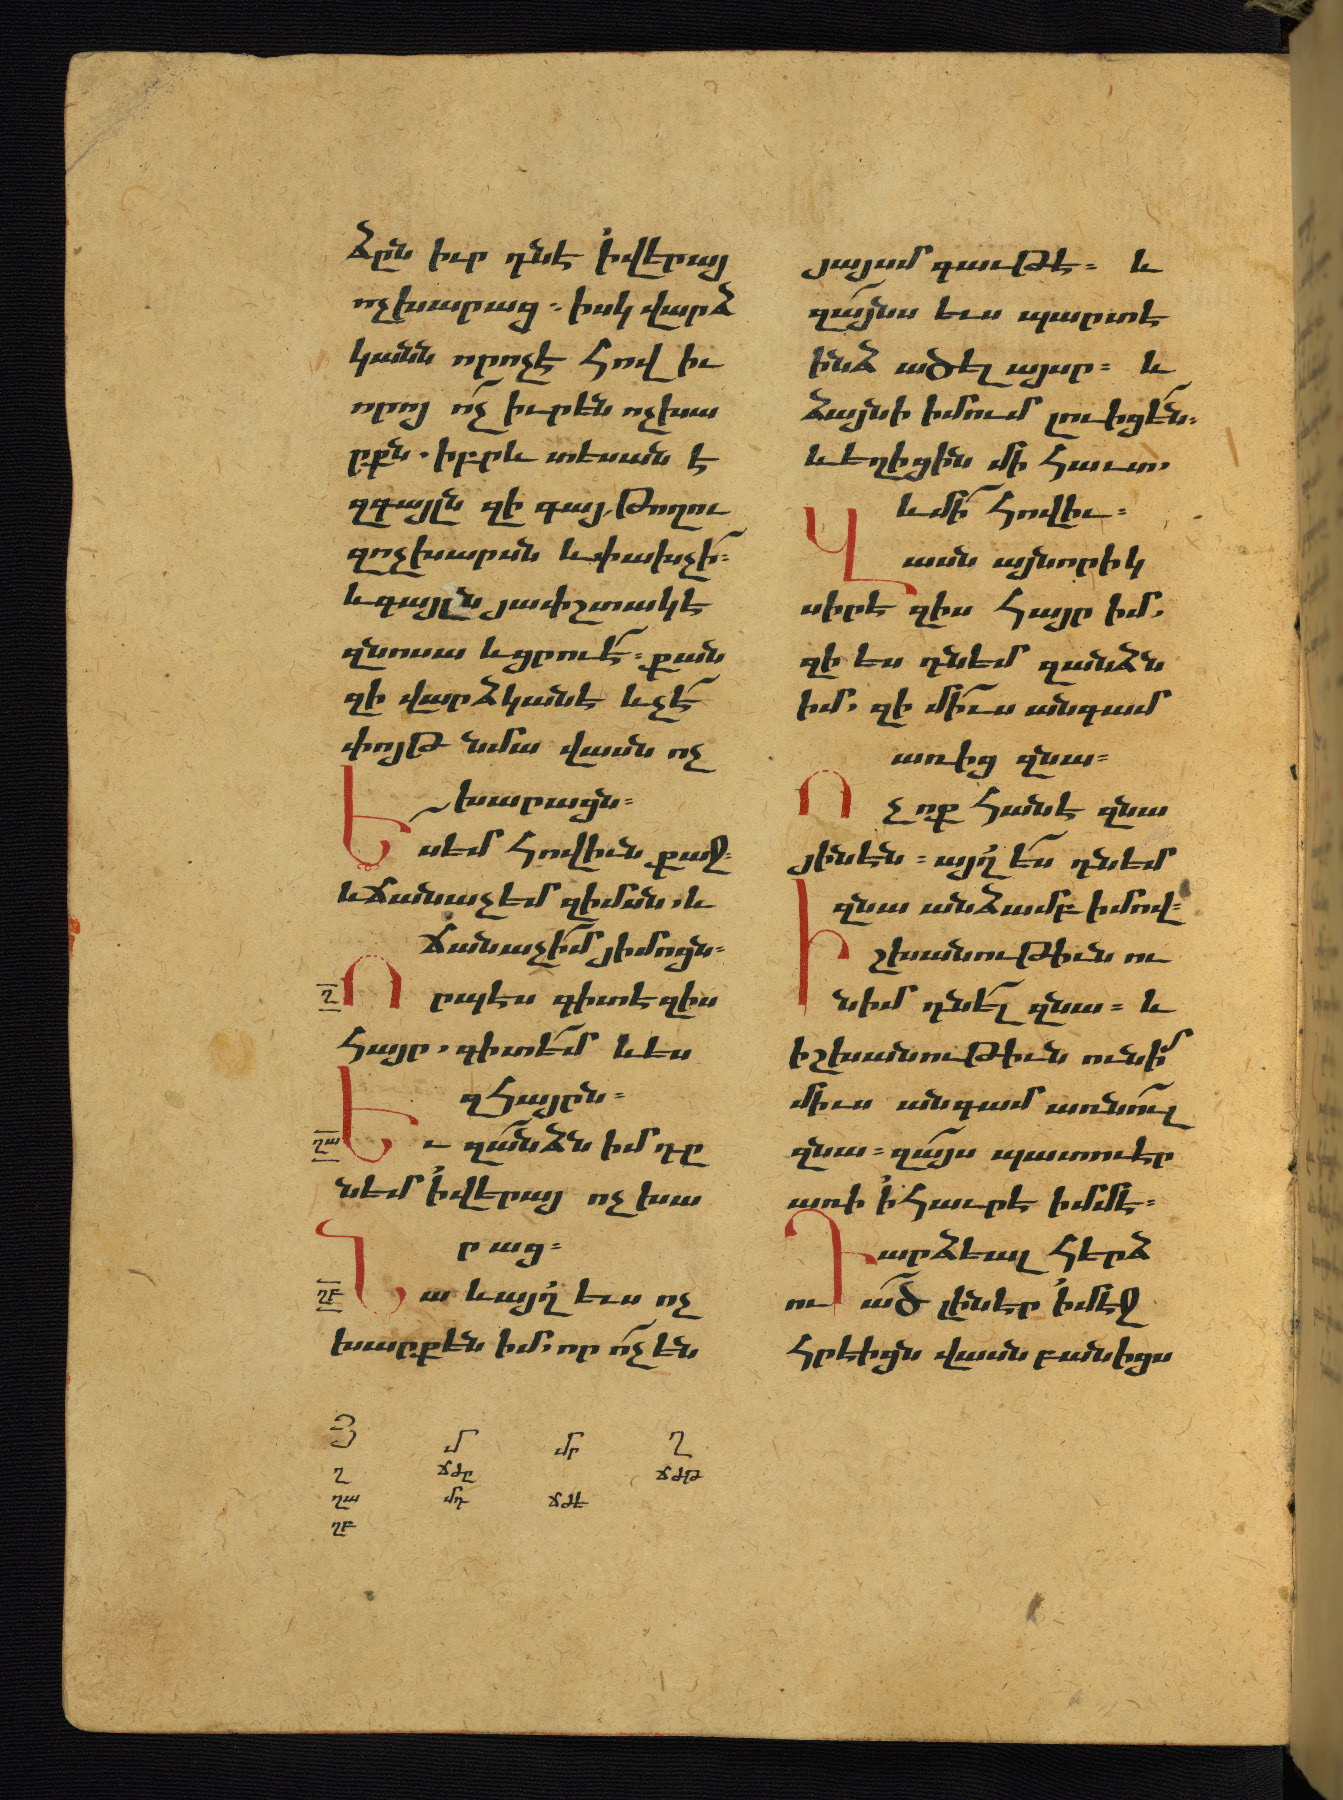 ձըն իւր դնէ ի վերայ
ոչխարաց։ իսկ վարձ
կանն որ ոչէ հովիւ
որոյ ո՛չ իւրեն ոչխա
րքն. իբրև տեսանէ
զգայլն զի գայ, թողու
զոչխարսն և փախչի՛։
և գայլն յափշտակէ
զնոսա և ցրուէ՛։ քան
զի վարձկանէ և չէ՛
փոյթ նմա վասն ոչ
խարացն։
Ես եմ հովիւն քաջ։
և ճանաչեմ զիմսն, և
ճանաչի՛մ յիմոցն։
Ղ Որպէս գիտէ զիս
հայր, գիտե՛մ և ես
զհայրն։
ՂԱ Եւ զա՛նձն իմ դը
նեմ ի վերայ ոչխա
րաց։
ՂԲ Նա և այղ ևս ոչ
խարք են իմ, որ ո՛չ են
յայսմ գաւթէ։ և
զա՛յնս ևս պարտէ
ինձ ածել այսր։ և
ձայնի իմում լուիցե՛ն։
և եղիցին մի հաւտ,
և մի՛ հովիւ։
Վասն այնորիկ
սիրէ զիս հայր իմ,
զի ես դնեմ զանձն
իմ, զի մի՛ւս անգամ
առից զնա։
Ոչ ոք հանէ զնա
յինէն։ այղ ե՛ս դնեմ
զնա անձամբ իմով։
Իշխանութիւն ու
նիմ դնե՛լ զնա։ և
իշխանութիւն ունի՛մ
միւս անգամ առնո՛ւլ
զնա։ զա՛յս պատուէր
առի ի հաւրէ իմմէ։
Դարձեալ հերձ
ուա՛ծ լինէր ի մէջ
հրէիցն վասն բանիցս
Յ Մ Մր Ղ
Ղ ՃԺԸ ՃԺԹ
ՂԱ ՄԴ ՃԺԷ
ՂԲ